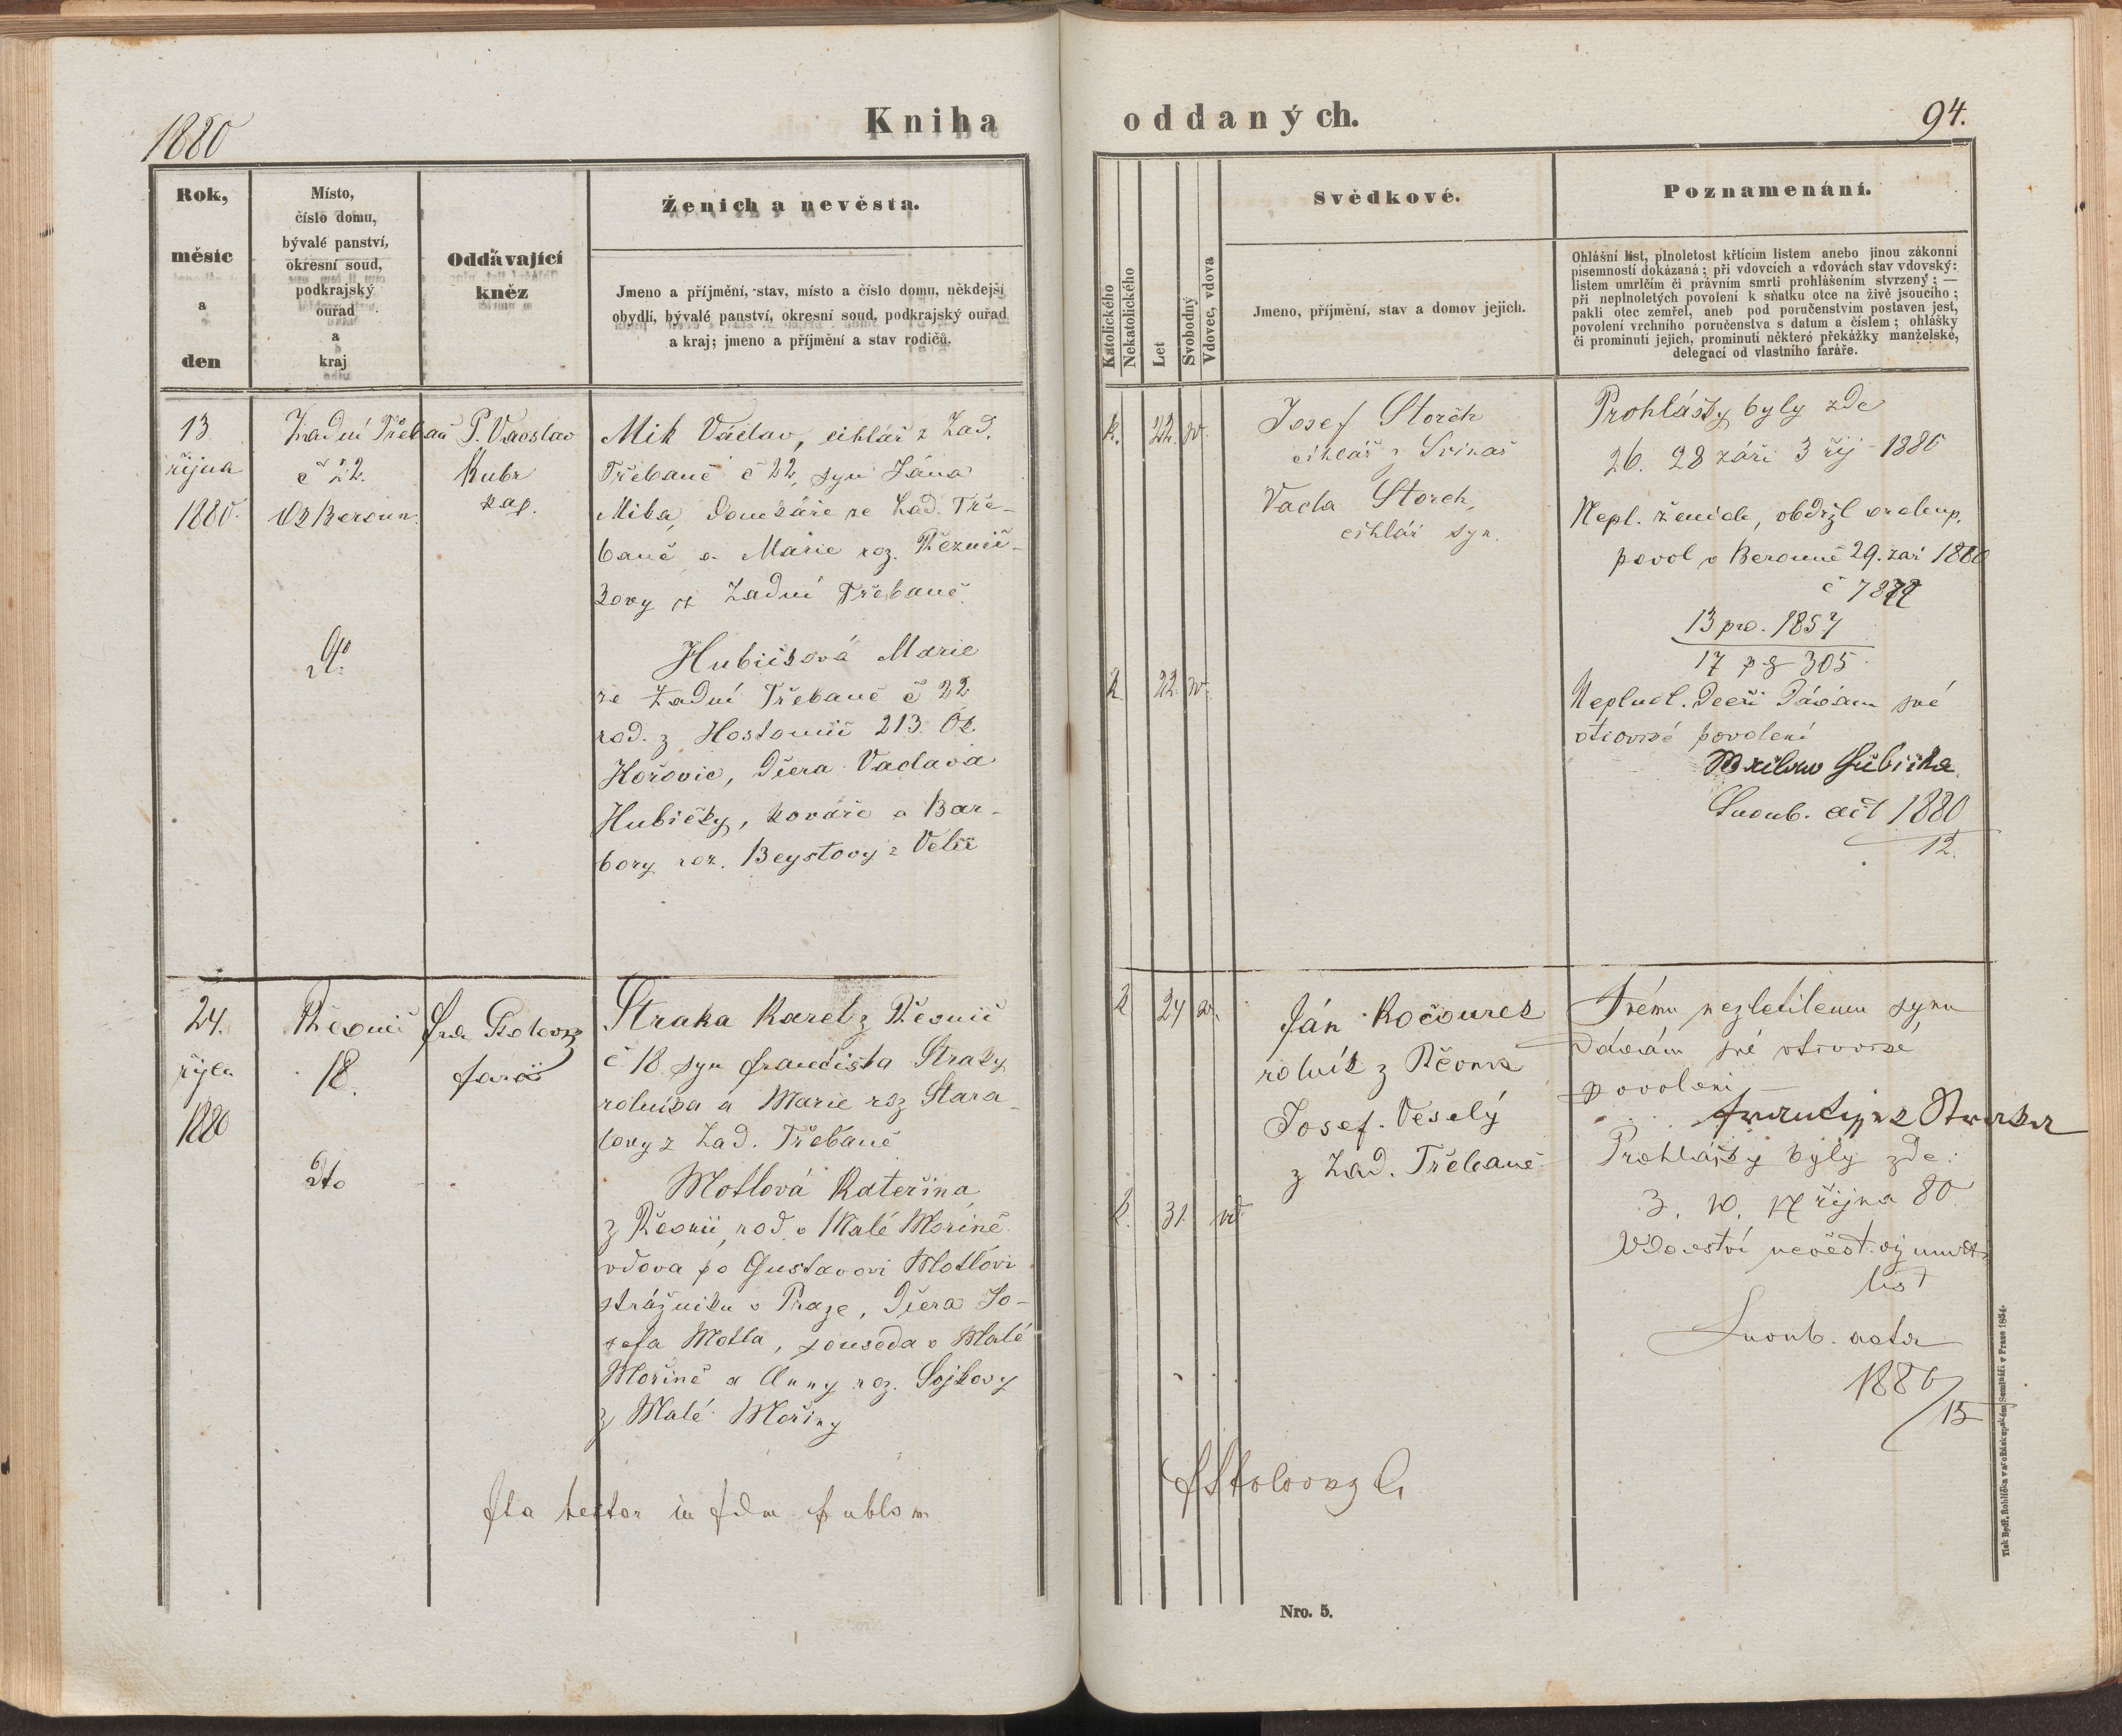 1880
Kniha
oddaných.
94.
Rok,
měsíc
a
den
Místo,
číslo domu,
bývalé panství,
okresní soud,
podkrajský
ouřad
a
kraj
Oddávající
kněz
Ženich a nevěsta.
Jmeno a příjmění, stav, místo a číslo domu, někdejší
obydlí, bývalé panství, okresní soud, podkrajský ouřad
a kraj; jmeno a příjmění a stav rodičů.
Katolického
Nekatolického
Let
Svobodný
Vdovec, vdova
Svědkové.
Jmeno, příjmění, stav a domov jejich.
Poznamenání.
Ohlášní list, plnoletost křtícím listem anebo jinou zákonní
písemností dokázaná; při vdovcích a vdovách stav vdovský:
listem umrlčím či právním smrti prohlášením stvrzený; —
při neplnoletých povolení k sňatku otce na živě jsoucího;
pakli otec zemřel, aneb pod poručenstvím postaven jest,
povolení vrchního poručenstva s datum a číslem; ohlášky
či prominutí jejich, prominutí některé překážky manželské,
delegací od vlastního faráře.
13
října
1880.
Zadní Třebaň
č 22.
Ok Beroun.
dto
P. Vaclav
Kubr
kap.
Mik Václav, cihlář z Zad.
Třebaně č 22, syn Jána
Mika, domkáře ze Zad. Tře-
baně a Marie roz. Řeznič-
kovy z Zadní Třebaně
Hubičková Marie
ze Zadní Třebaně č 22
rod. z Hostomic 213. Ok.
Hořovic, dcera Vaclava
Hubičky, kováře a Bar-
bory roz. Beystovy z
k. 22. sv.
k. 22. sv.
Josef Storch
cihlář z Svinař
Vacla Storch,
cihlář syn.
Prohlášky byly zde
26. 28 září 3 říj 1880
Nepl. ženich, obdržl
povol v Berouně 29. zař 1880
č
13 pro. 1857
17 pg 305
dceři dávám své
otcovské povolení
Snoub. act 1880
12.
24.
října
1880
Řevnič
18.
dto
farář
Straka Karel z Řevnic
č 18 syn Františka Straky
rolníka a Marie roz Stara-
z Zad. Třebaně
Motlová Kateřina
z Řevnic, rod. v Malé Mořině
vdova po Gustavovi Motlovi
strážníku v Praze, dcera Jo-
sefa Motla, souseda v Malé
Mořině a Anny roz. Sojkovy
z Malé Mořiny
k 24 sv.
k. 31. vd
Ján Kočourek
rolník z Řevnic
Josef Veselý
z Zad. Třebaně
Svému nezletilemu synu
dávám své otcovské
povolení —
František Straka
Prohlášky byly zde:
3. 10. 17 října 80
Vdovství nevěst. viz umrtn
list
Snoub. acta
1880/15
Ita testor in fidem
Nro. 5.
Tisk Bedř. Rohlíčka v arcibiskupském Semináři v Praze 1854.